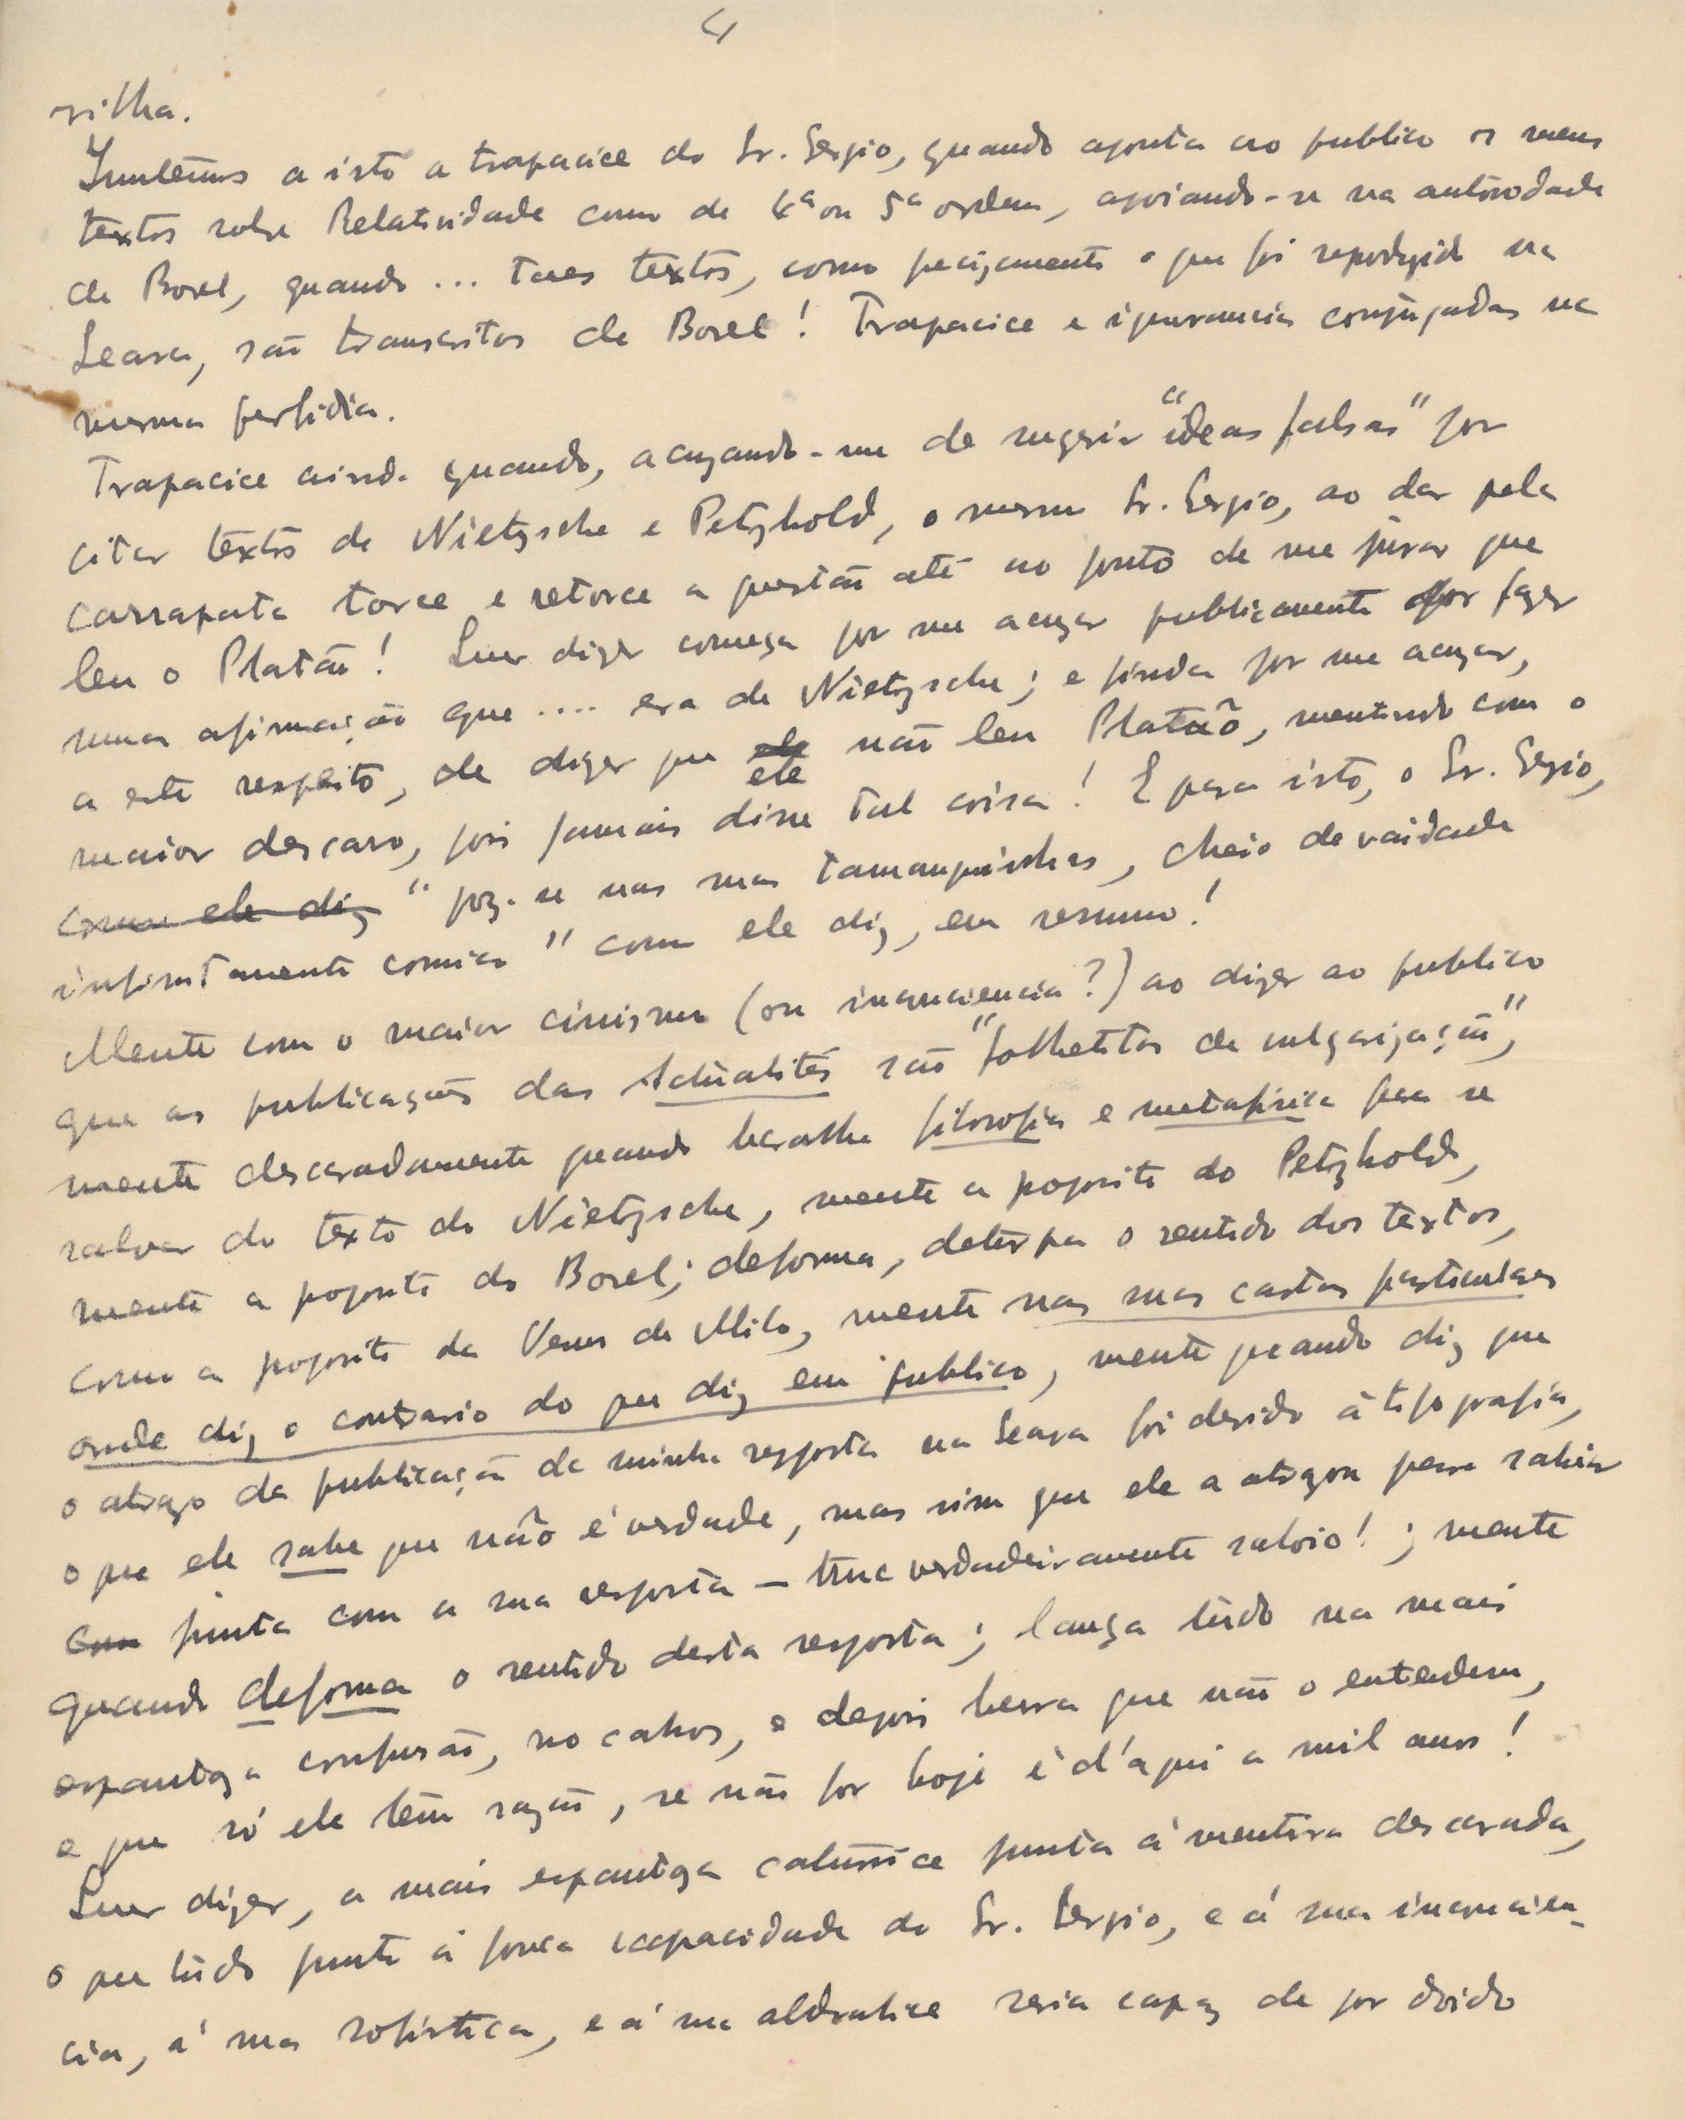 4
rilha.
Juntêmos a isto a trapacice do Sr. Sergio, quando aponta ao publico os meus
textos sobre Relatividade como de 4ª ou 5ª ordem, apoiando-se na autoridade
de Borel, quando ... taes textos, como precizamente o que foi reproduzido na
Seara, são transcritos de Borel! Trapacice e ignorancia conjugadas na
mesma perfidia.
Trapacice ainda quando, acuzando-me de sugerir "ideas falsas" por
citar textos de Nietzsche e Petzhold, o mesmo Sr. Sergio, ao dar pela
carrapata torce e retorce a questão até ao ponto de me jurar que
leu o Platão! Quer dizer começa por me acuzar publicamente por fazer
uma afirmação que .... era de Nietzsche; e finda por me acuzar,
a este respeito, de dizer que ele não leu Platão, mentindo com o
maior descaro, pois jamais disse tal coisa! E para isto, o Sr. Sergio,
como ele diz "poz-se nas suas tamanquinhas, cheio de vaidade
infinitamente comica" como ele diz, em resumo!
Mente com o maior cinismo (ou inconsciencia?) ao dizer ao publico
que as publicações das Actualités são "folhetitos de vulgarização",
mente descaradamente quando baralha filosofia e metafisica para se
salvar do texto do Nietzsche, mente a proposito do Petzhold,
mente a proposito do Borel; deforma, deturpa o sentido dos textos,
como a proposito da Venus de Milo, mente nas suas cartas particulares
onde diz o contrario do que diz em publico, mente quando diz que
o atrazo da publicação da minha resposta na Seara foi devido á tipografia,
o que ele sabe que não é verdade, mas sim que ele a atrazou para sahir
com junta com a sua resposta — truc verdadeiramente saloio!; mente
quando deforma o sentido desta resposta; lança tudo na mais
espantoza confusão, no cahos, e depois berra que não o entendem,
e que só ele têm razão, se não for hoje é d'aqui a mil anos!
Quer dizer, a mais espantoza junta á mentira descarada,
o que tudo junto á pouca capacidade do Sr. Sergio, e á sua inconscien-
cia, á sua sofistica, e á sua aldrabice seria capaz de por doido